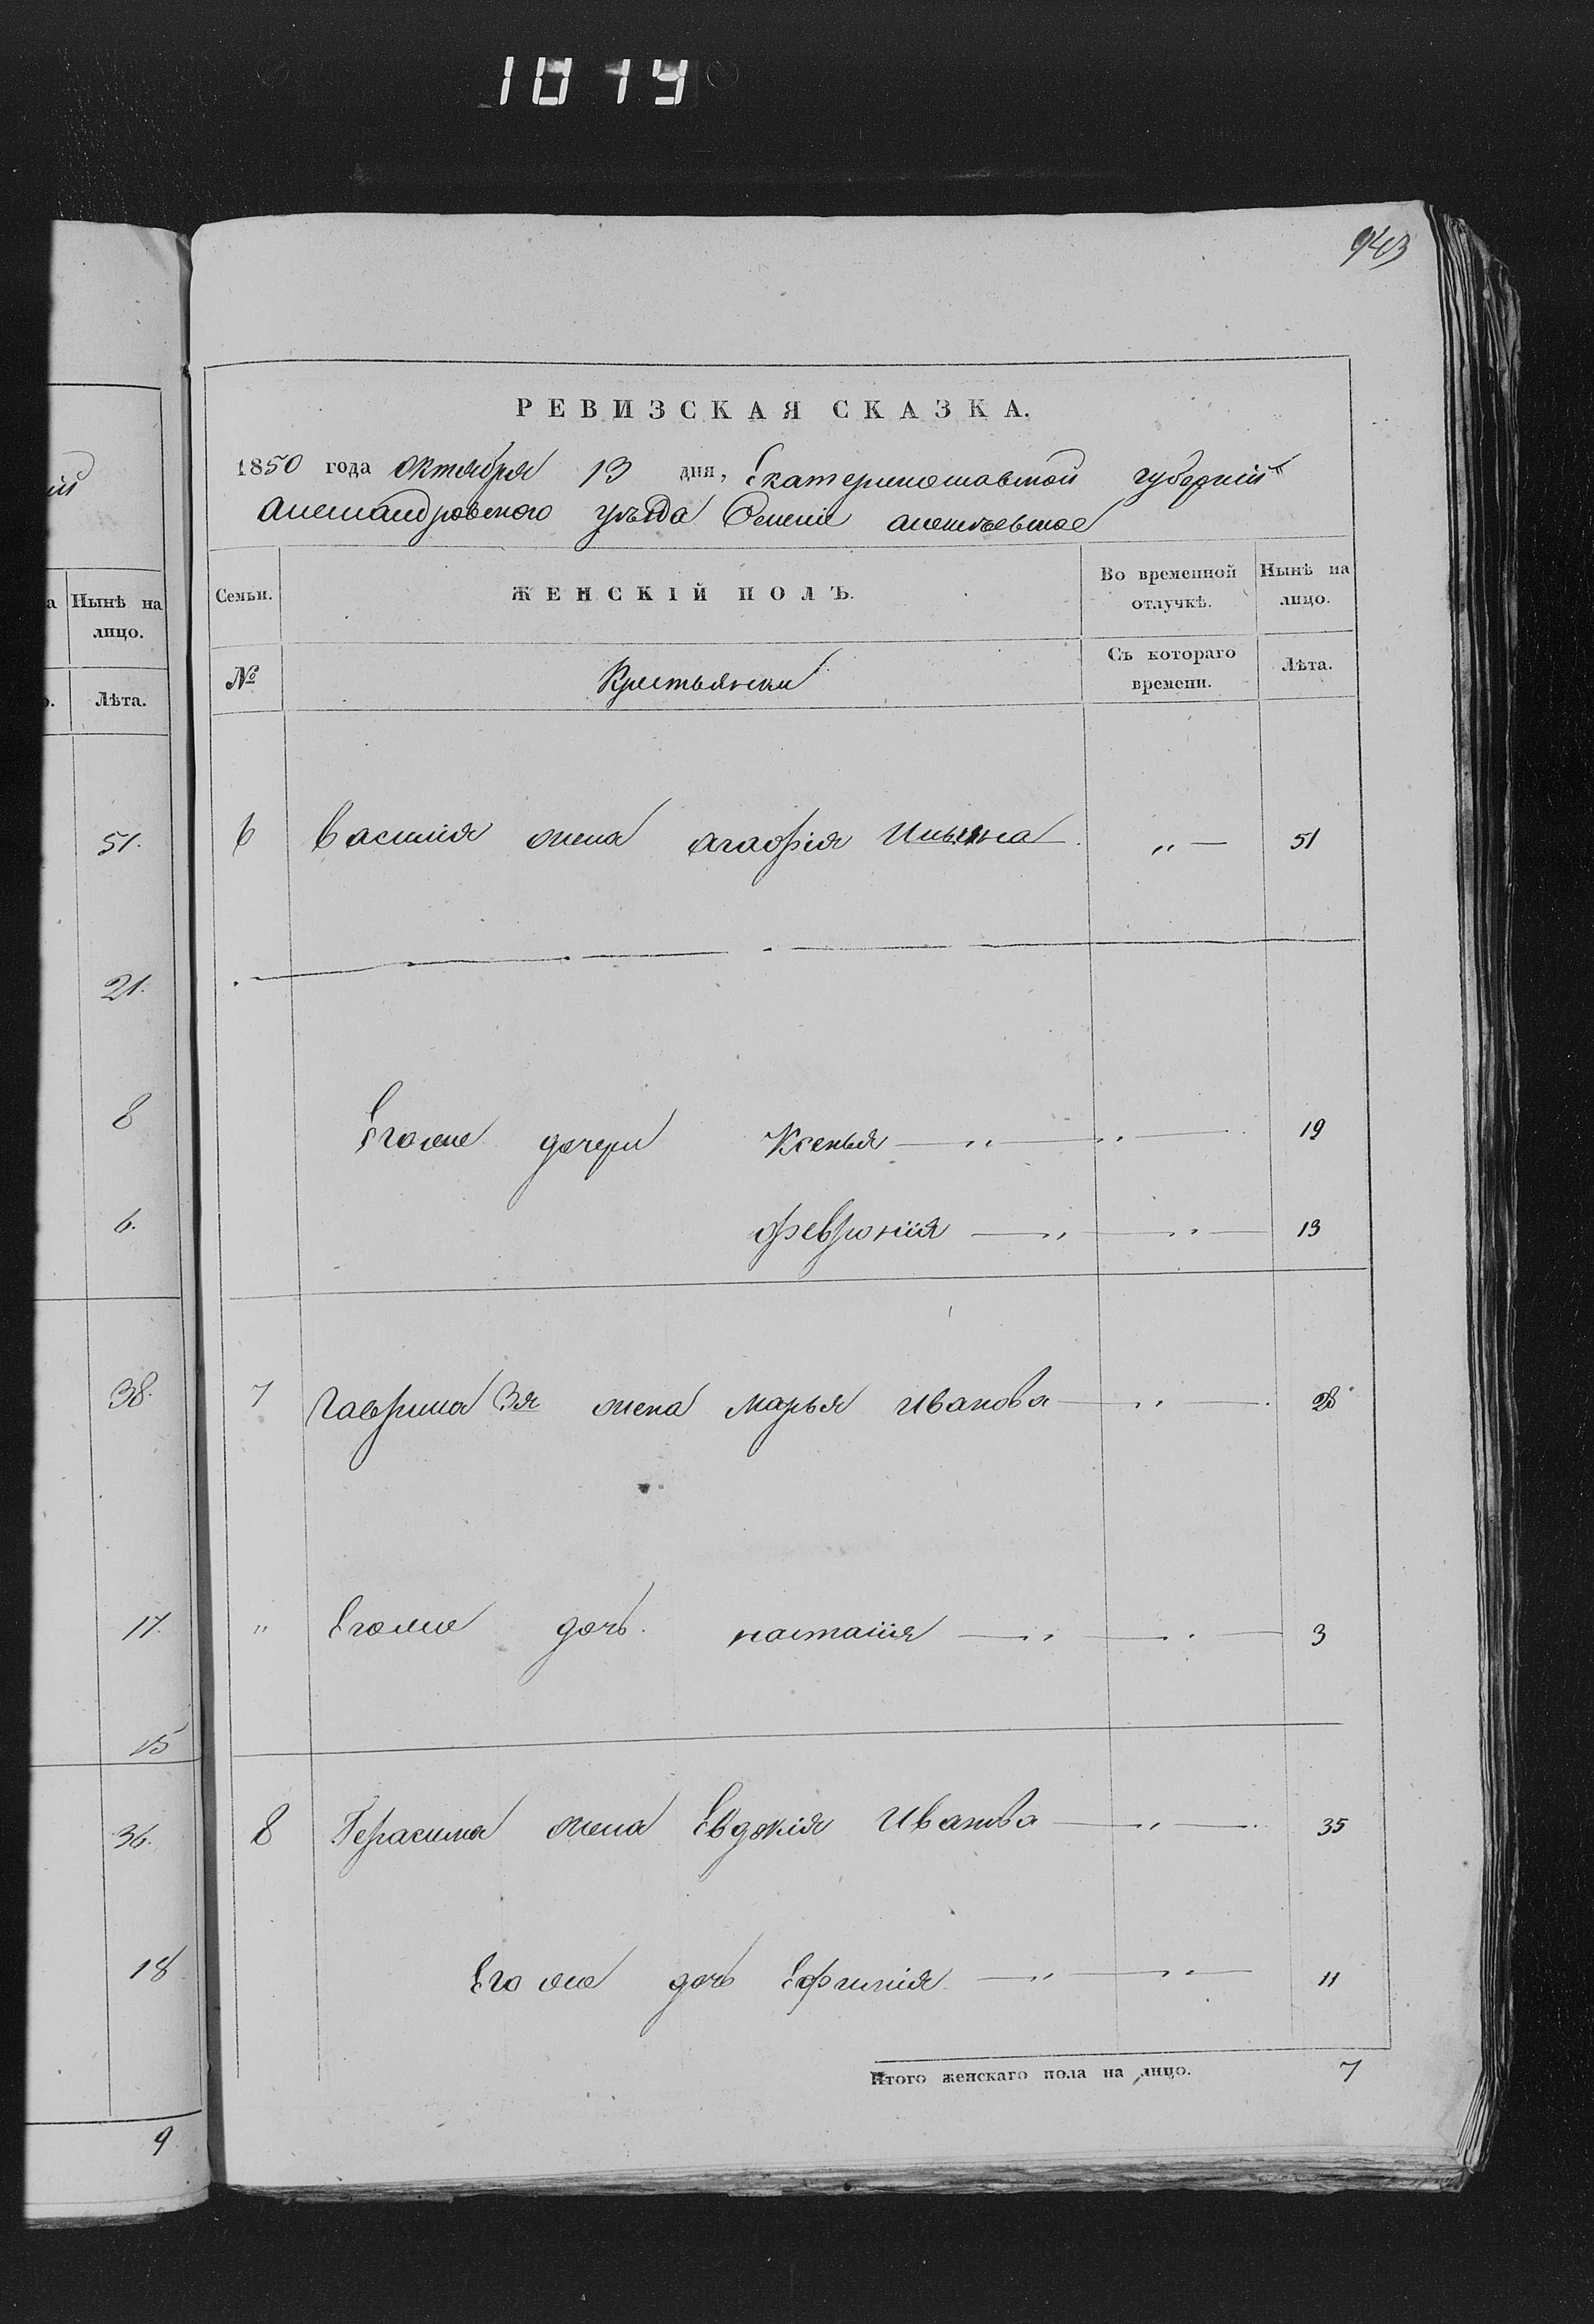 1019
943
РЕВИЗСКАЯ СКАЗКА.
1850 года Октября 13 дня, Екатеринославской губерніи
Александровского уѣзда Селеніе алексѣевское
Семьи. ЖЕНСКІЙ ПОЛЪ. Во временной отлучкѣ. Нынѣ на лицо.
№ Крестьянки Съ котораго времени. Лѣта.
6 Василія жена агафія Ильина „ — 51
Егоже дочери Ксенья — „ — „ — 19
феврония — „ — „ — 13
7 гаврила 3я жена марья иванова — „ — 28
„ Егоже дочь настасія — „ — „ — 3
8 Герасима жена Евдокія Иванова — „ — 35
Его же дочь Ефимія — „ — „ — 11
Итого женскаго пола на лицо. 7
а Нынѣ на лицо.
Лѣта.
51.
21.
8
6.
38.
17.
15
36.
18
9